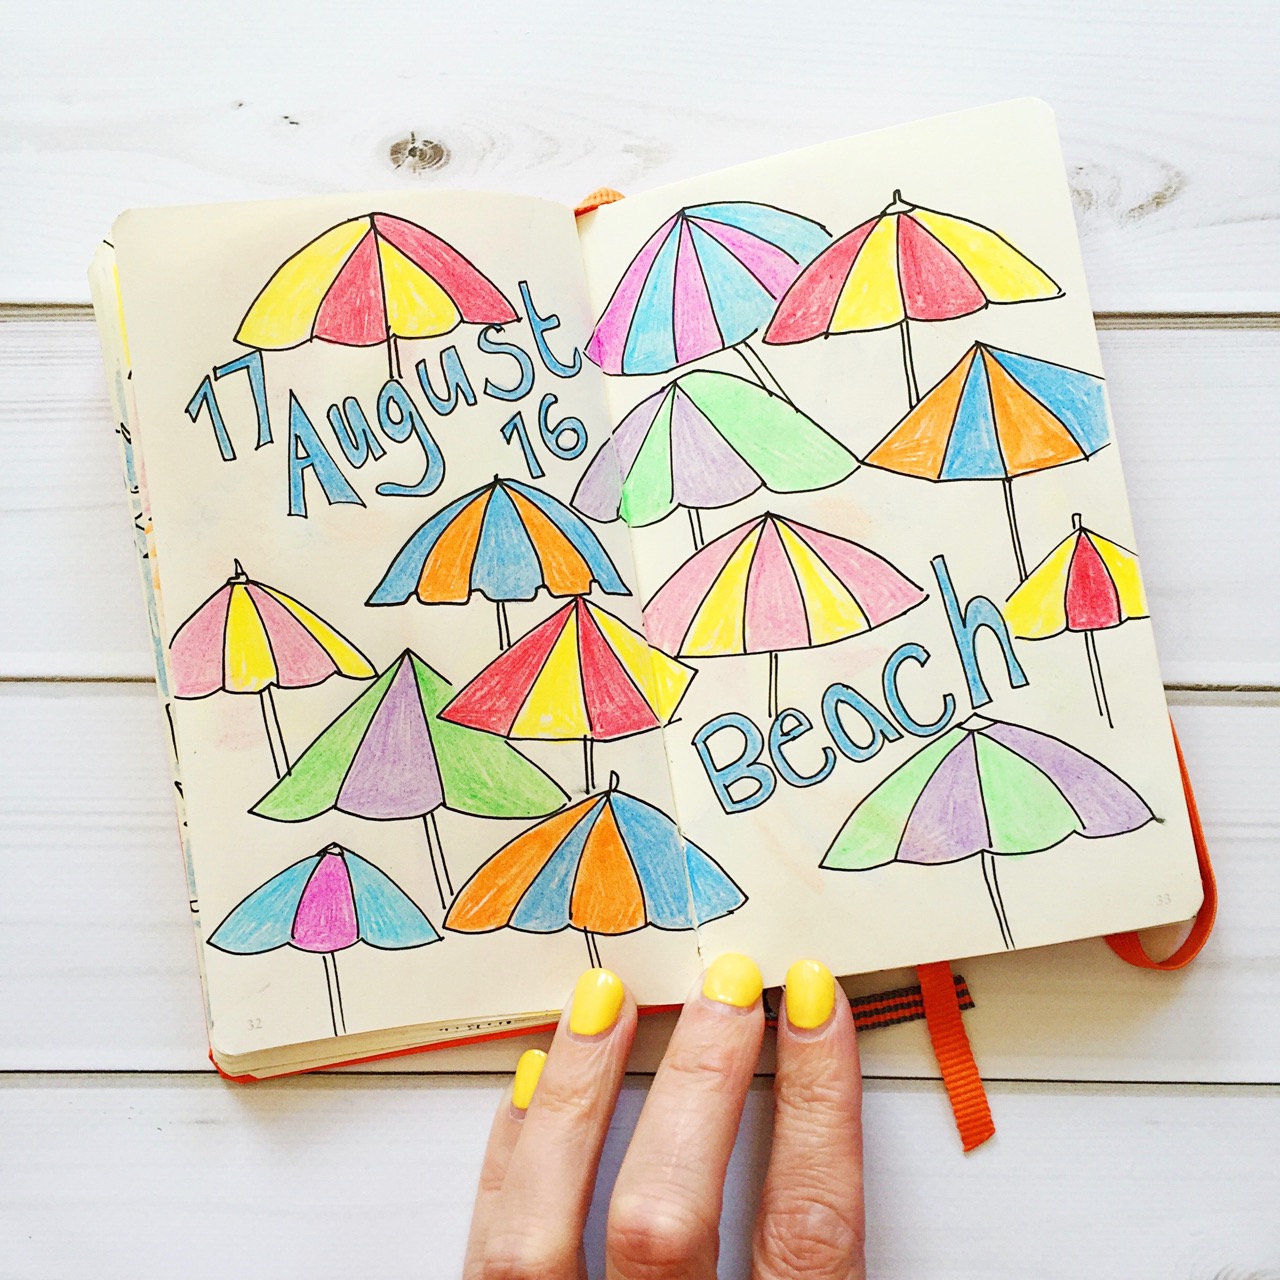 17 August
16
Beach
32
33